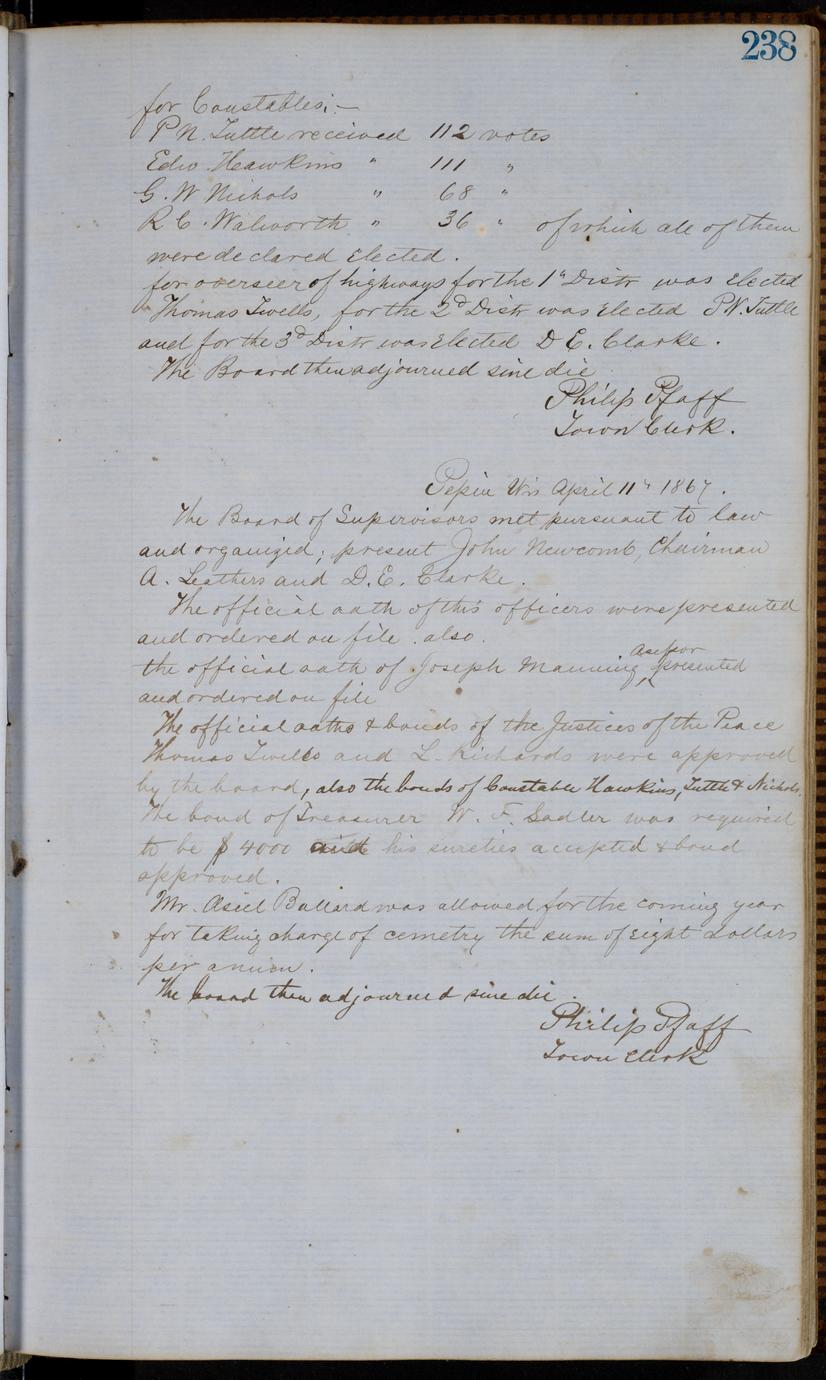 238
for Constables:—
P. N. Tuttle received 112 votes
Edw. Hawkins " 111 "
G. W Nichols " 68 "
R C. Walworth " 36 " of which all of them
were declared Elected.
for overseer of highways for the 1" Distr was Elected
Thomas Twells, for the 2d Distr was Elected P. N. Tuttle
and for the 3d Distr was Elected D E. Clarke.
The Board then adjourned sine die
Philip Pfaff
Town Clerk.
Pepin Wis April 11" 1867.
The Board of Supervisors met pursuant to law
and organized; present John Newcomb, Chairman
A. Leathers and D. E. Clarke.
The official oath of this officers were presented
and ordered on file. also.
the official oath of Joseph Manning, assessor presented
and ordered on file
The official oaths & bonds of the Justices of the Peace
Thomas Twells and L. Richards were approved
by the board, also the bonds of Constable Hawkins, Tuttle & Nichols.
The bond of Treasurer W. F. Sadler was required
to be $ 4000 and his sureties accepted & bond
approved.
Mr. Asiel Ballard was allowed for the coming year
for taking charge of cemetry the sum of Eight dollars
per annum.
The board then adjourned sine die.
Philip Pfaff
Town Clerk